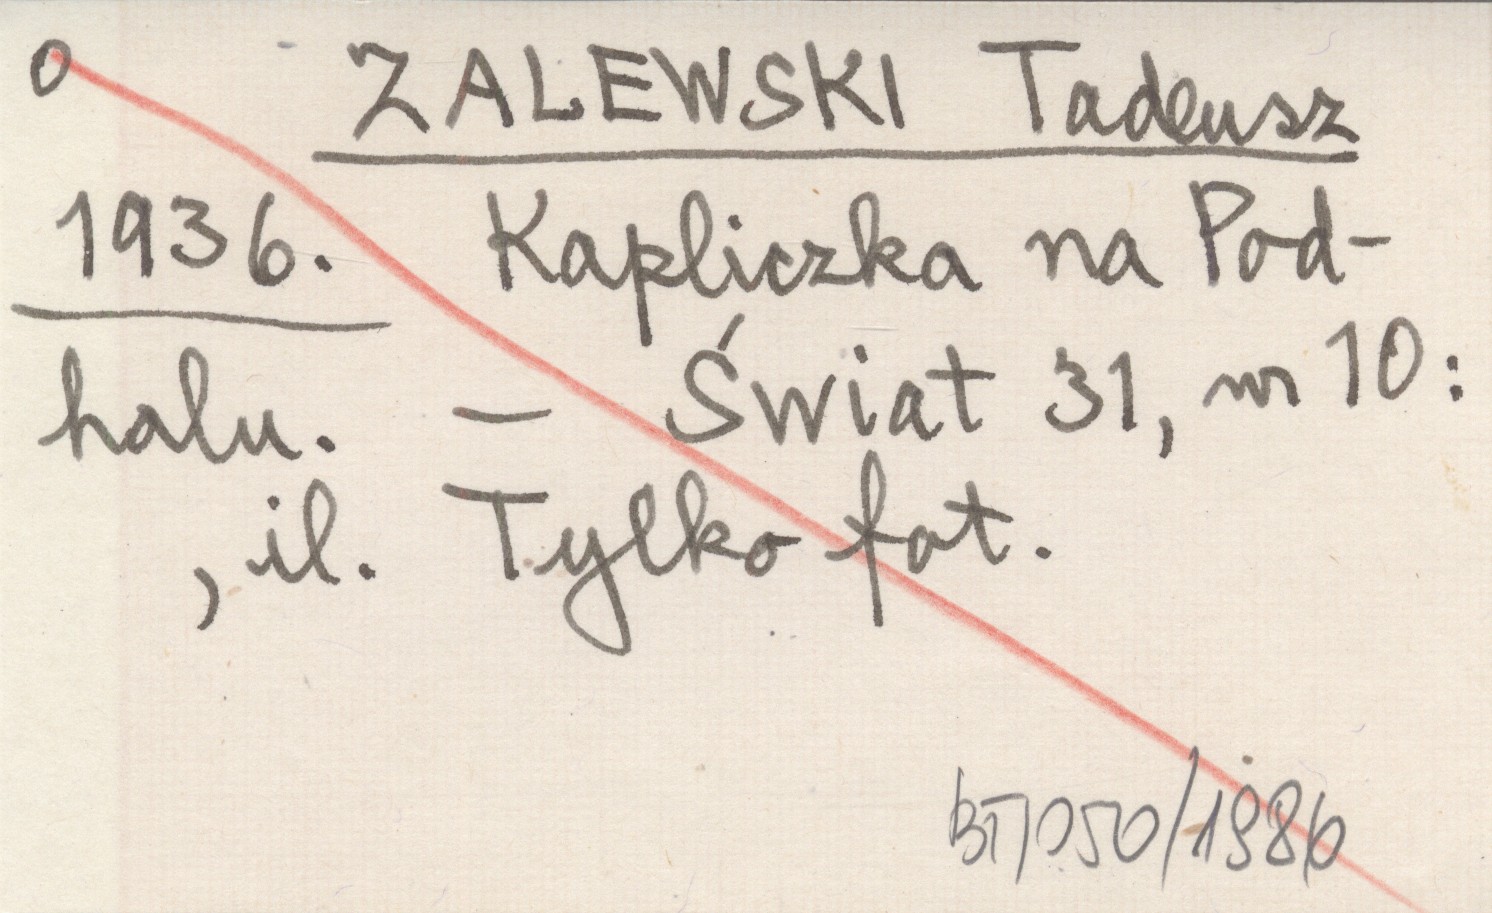 0 ZALEWSKI Tadeusz
1936. Kapliczka na Pod-
halu. — Świat 31, nr 10:
, il. Tylko fot.
BT/050/1986